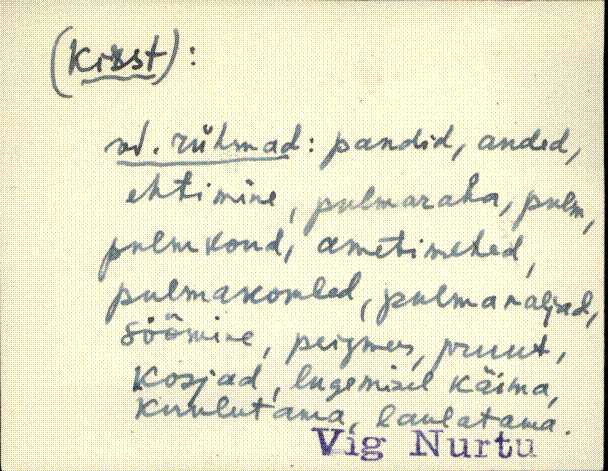 (Kirst):
vd. rühmad: pandid, anded,
ehtimine, pulmaraha, pulm,
pulmkond, ametimehed,
pulmakombed, pulmanaljad,
söömine, peigmees, pruut,
kosjad, lugemisel käima,
kuulutama, laulatama.
Vig Nurtu